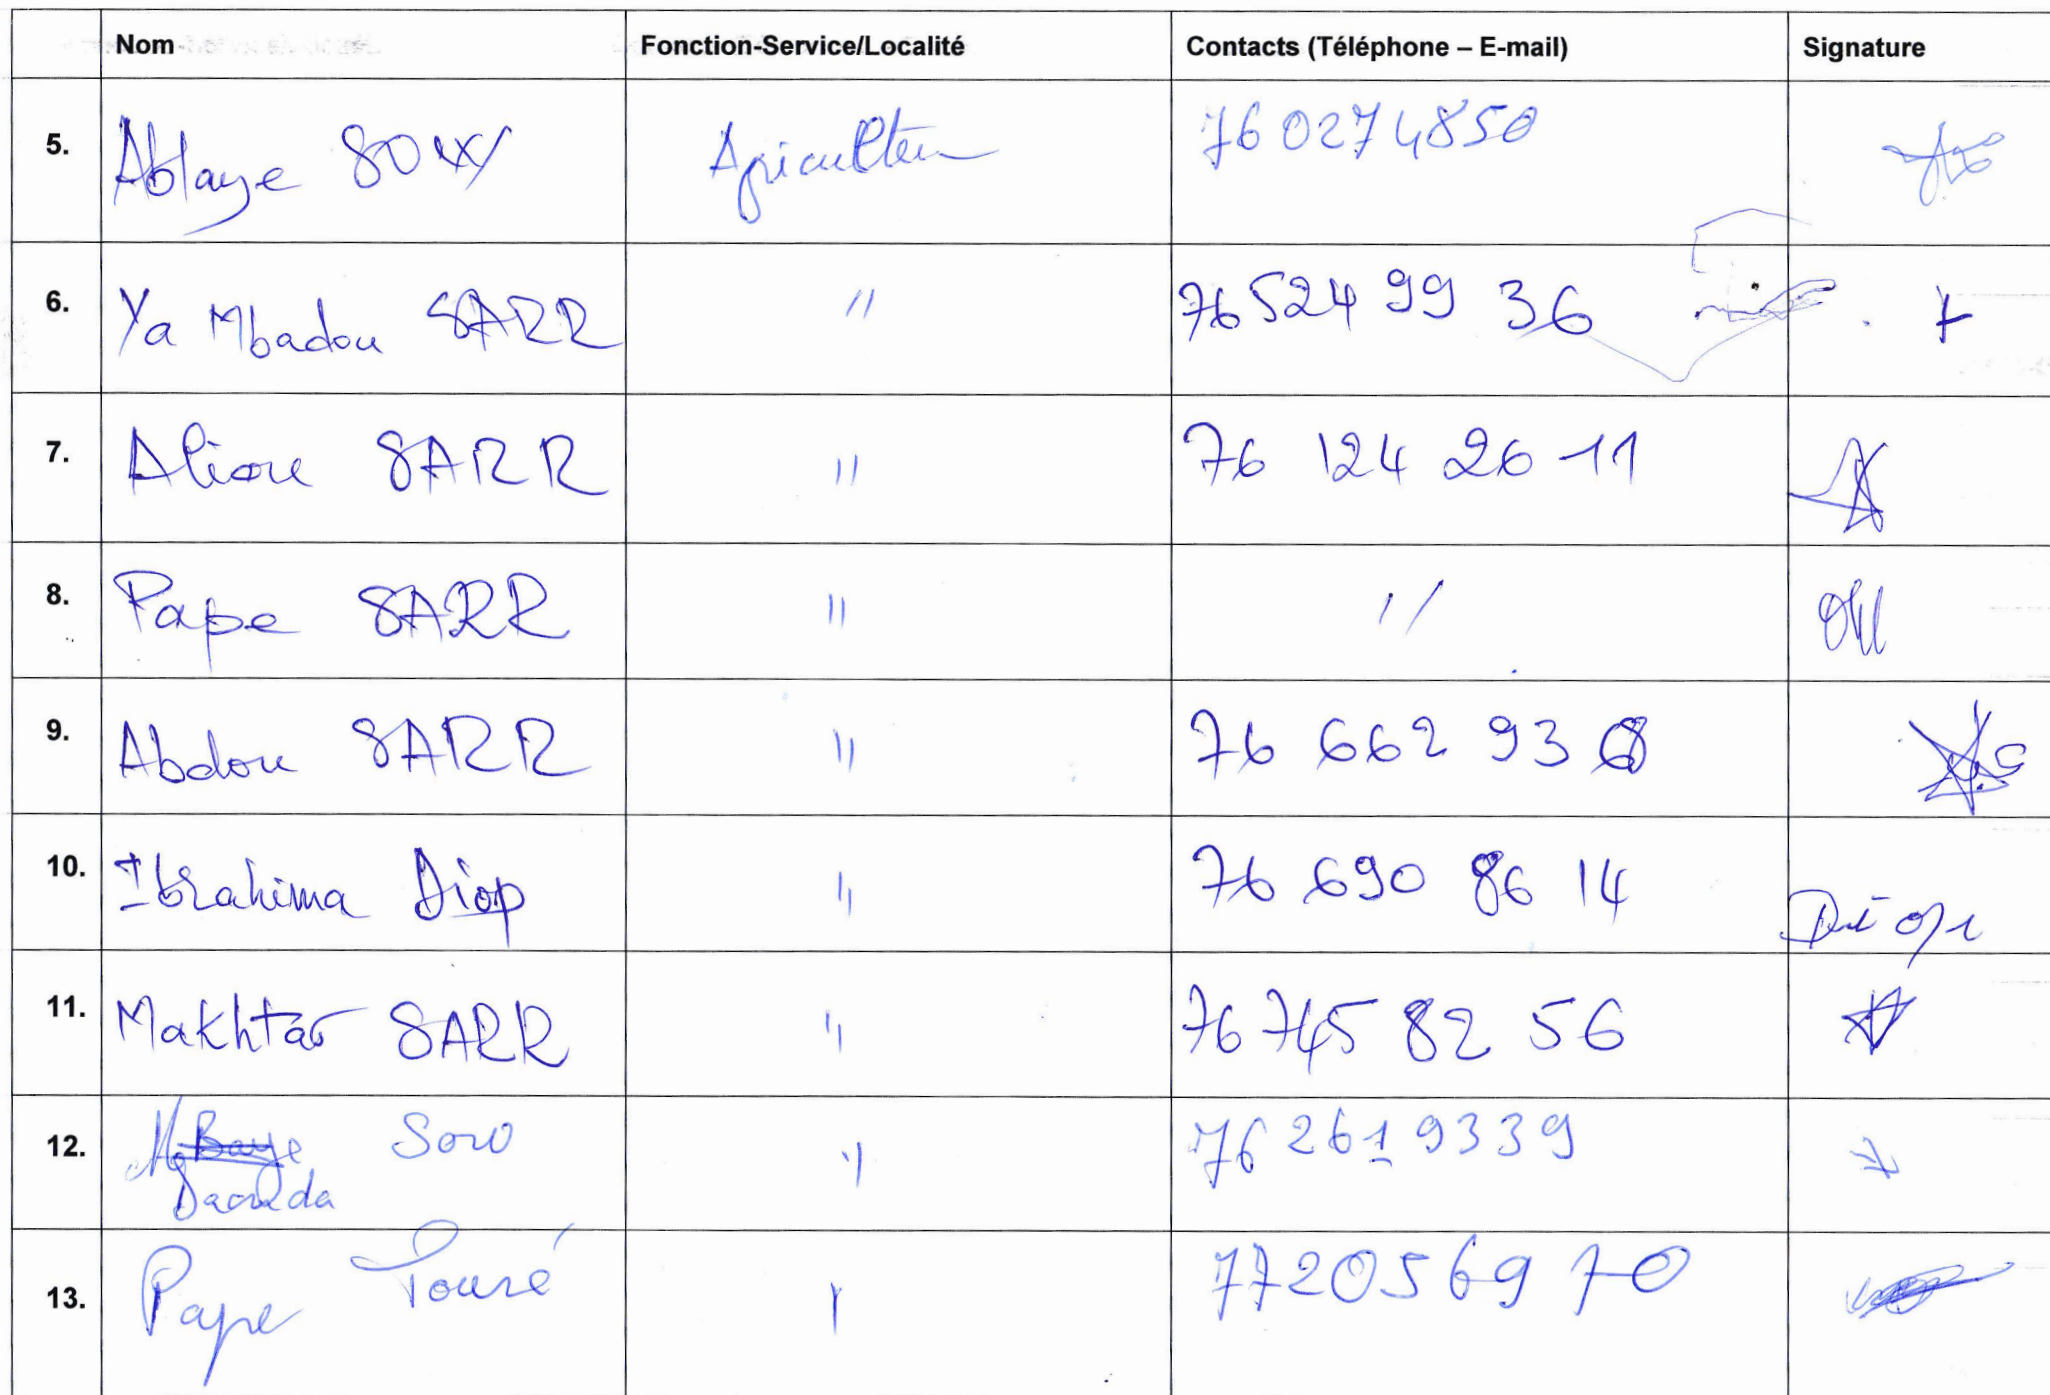 Nom Fonction-Service/Localité Contacts (Téléphone – E-mail) Signature
5. Ablaye SOW Agriculteur 760274850
6. Ya Mbadou SARR " 76 524 99 36
7. Aliou SARR " 76 124 26 11
8. Pape SARR " "
9. Abdou SARR " 76 662 93
10. Ibrahima Diop " 76 690 86 14
11. Makhtar SARR " 76 745 82 56
12. Sow " 76 261 9339
Daouda
13. Pape Touré " 77205 69 70